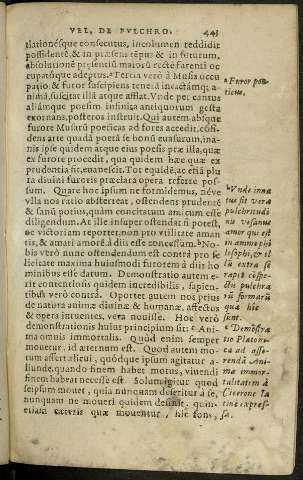 VEL, DE PVLCHRO. 443
tlationésque consecutus, incolumen reddidit
possidentē, & in præsens tēpus & in futurum,
absolutionē præsentiū maloru̅ rectè furenti oc
cupatóque adeptus. Tertia verò à Musis occu
patio & furor suscipiens teneră invactámq; a-
nimā, suscitat illā atque afflat. Vnde per cantus
aliámque poësim infinita antiquorum gesta
exornans, posteros instruit. Qui autem absque
furore Musarū poëticas ad fores accedit, cōfi-
dens arte quadā poëtā se bonū euasurum, ina-
nis ipse quidem atque eius poësis præ illa, quæ
ex furore procedit, qua quidem hæc quæ ex
prudentia fit, euanescit. Tot equidē, ac etiā plu
ra diuini furoris præclara opera referre pos-
sum. Quare hoc ipsum ne formidemus, néve
vlla nos ratio absterreat, ostendens prudentē
& sanū potius, quàm concitatum amicum esse
diligendum. At ille insuper ostendat si potest,
ac victoriam reportet: non pro vtilitate aman
tis, & amati amorē à diis esse concessum. No-
bis verò nunc ostendendum est contrà pro fe
licitate maxima huiusmodi furorem à diis ho
minibus esse datum. Demonstratio autem e-
rit contentiosis quidem incredibilis, sapien-
tibus verò contrà. Oportet autem nos prius
de natura animæ diuinæ & humanæ, affectus
& opera intuentes, vera nouisse. Hoc verò
demonstrationis huius principium sit: Ani-
ma omnis immortalis. Quod enim semper
mouetur, id æternum est. Quod autem mo-
tum affert alicui, quódque ipsum agitatur a-
liunde, quando finem habet motus, viuendi
finem habeat necesse est. Solum igitur quod
seipsum mouet, quia nunquam deseritur à se,
nunquam ne moueri quidem desinit, quin-
etiam cæteris quæ mouentur, hic fons,
a Furor poë-
ticus.
b Vnde inna
tus sit vera
pulchritudi
nis
amor qui est
in animo phi
losophi, & il
lū extra se
rapit
dū pulchra
formarū
quæ hîc
sunt.
c Demōstra
tio Platoni-
ca ad asse-
rendā Ani-
ma immor-
talitatem à
Cicerone la
tinè expres-
sa.